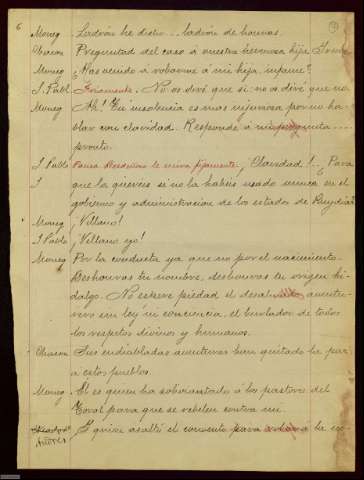 6
Moneg Ladrón he dicho... ladrón de honras.
Chacon Preguntad del caso á vuestra hermosa hija
Moneg ¿Has venido á robarme á mi hija, infame?
J. Pabl Fríamente. No os diré que sí: no os diré que no.
Moneg Ah! Tu insolencia es mas injuriosa por no ha-
blar con claridad. Responde á mi pregunta ....
pronto.
J Pablo Pausa le mira fijamente. ¡Claridad!.. ¿Para
que la quereis si no la habéis usado nunca en el
gobierno y administración de los estados de
Moneg ¡Villano!
J Pablo ¡Villano yo!
Moneg Por la conducta ya que no por el nacimiento.
Deshonras tu nombre, deshonras tu origen hi-
dalgo. No espere piedad el desalmado aventu-
rero sin ley ni conciencia, el burlador de todos
los respetos divinos y humanos.
Chacon Sus endiabladas aventuras han quitado la paz
á estos pueblos.
Moneg El es quien ha soliviantado á los pastores del
Toral para que se rebelen contra mi.
Y quien asaltó el convento para robar á la no-